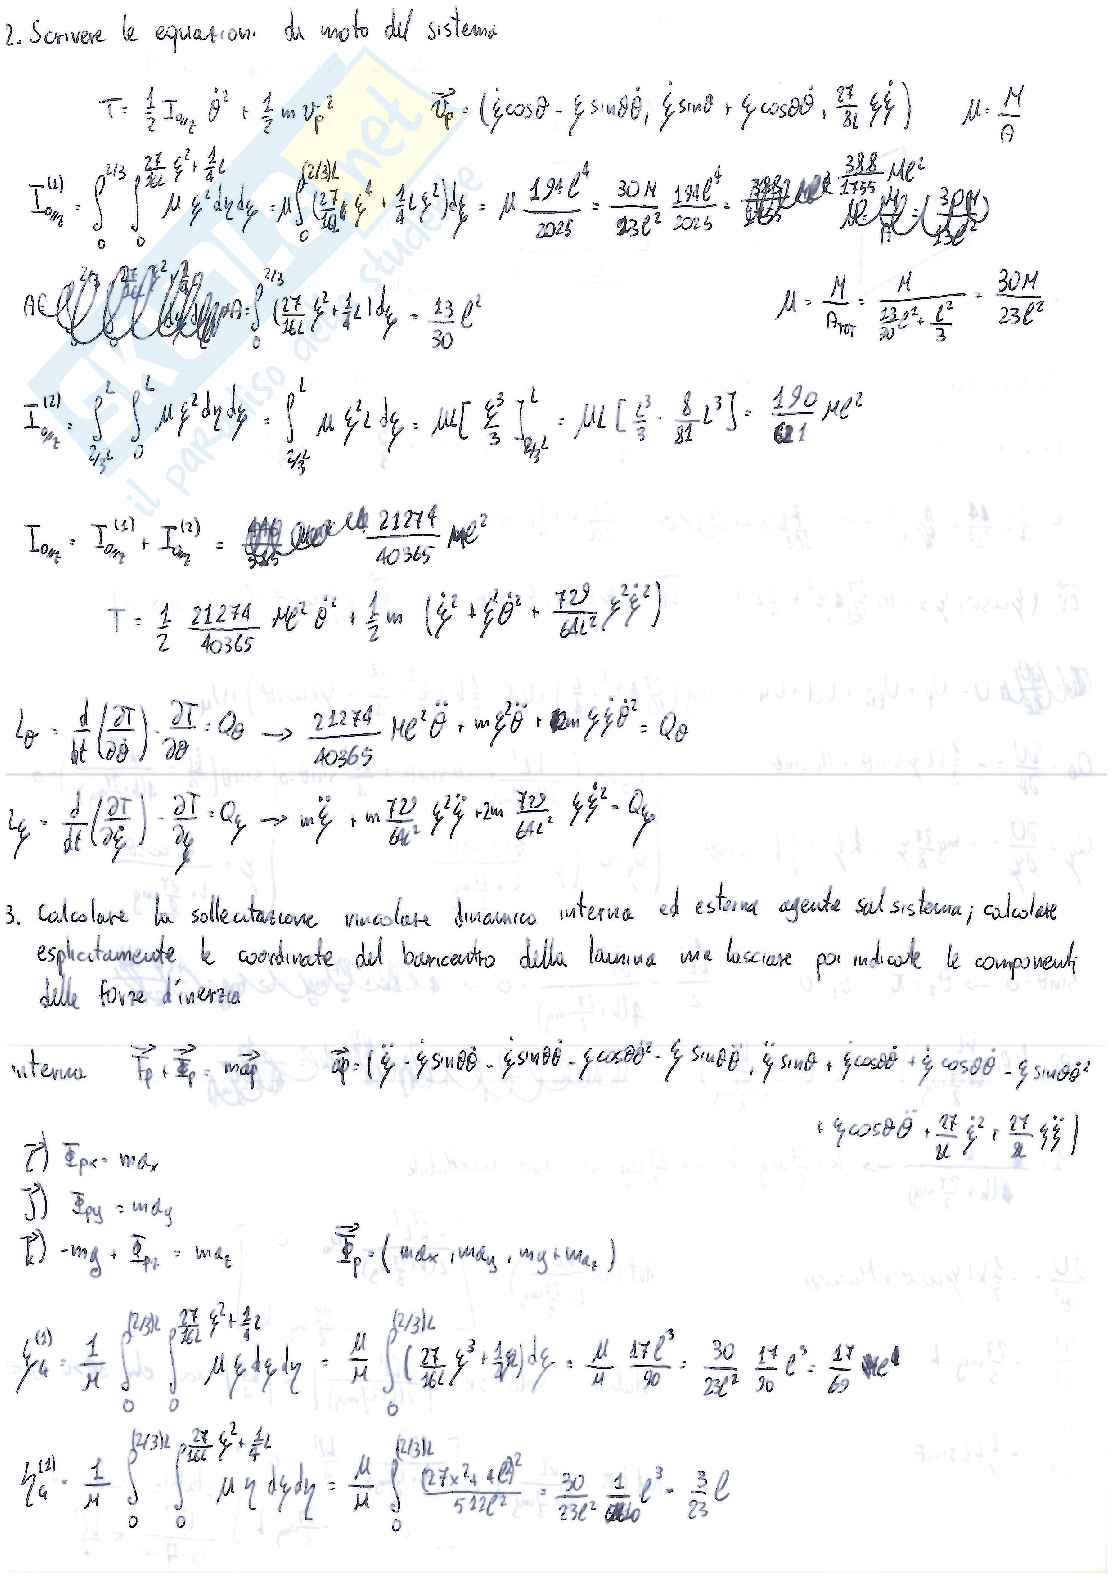 2. Scrivere le equazioni di moto del sistema
T = 1/2 I_Onz θ̇² + 1/2 m v_p²    v_p = (ξ̇cosθ - ξ sinθθ̇, ξ̇sinθ + ξ cosθθ̇, 27/8L ξξ̇)    μ = M/A
I_Onz^(1) = ∫_0^{2/3} ∫_0^{27/16L ξ² + 1/4 L} μ ξ² dη dξ = μ ∫_0^{(2/3)L} (27/16L ξ⁴ + 1/4 L ξ²) dξ = μ 194ℓ⁴/2025 = 30M/23ℓ² 194ℓ⁴/2025 = 388/1755 Mℓ²
A = ∫_0^{2/3} (27/16L ξ² + 1/4 L) dξ = 13/30 ℓ²    μ = M/A_TOT = M/(13/30 ℓ² + ℓ²/3) = 30M/23ℓ²
I_Onz^(2) = ∫_{2/3 L}^L ∫_0^L μ ξ² dη dξ = ∫_{2/3 L}^L μ ξ² L dξ = μL [ξ³/3]_{2/3 L}^L = μL [L³/3 - 8/81 L³] = 190/621 Mℓ²
I_Onz = I_Onz^(1) + I_Onz^(2) = 21274/40365 Mℓ²
T = 1/2 21274/40365 Mℓ² θ̇² + 1/2 m (ξ̇² + ξ²θ̇² + 729/64L² ξ²ξ̇²)
L_θ = d/dt (∂T/∂θ̇) - ∂T/∂θ = Q_θ → 21274/40365 Mℓ² θ̈ + mξ²θ̈ + 2mξξ̇θ̇² = Q_θ
L_ξ = d/dt (∂T/∂ξ̇) - ∂T/∂ξ = Q_ξ → mξ̈ + m 729/64L² ξ²ξ̈ + 2m 729/64L² ξξ̇² = Q_ξ
3. Calcolare la sollecitazione vincolare dinamico interna ed esterna agente sul sistema; calcolare
esplicitamente le coordinate del baricentro della lamina ma lasciare poi indicate le componenti
delle forze d'inerzia
interna    F_p + Φ_p = ma_p    a_p = (ξ̈ - ξ̇ sinθθ̇ - ξ̇ sinθθ̇ - ξ cosθθ̇² - ξ sinθθ̈, ξ̈ sinθ + ξ̇ cosθθ̇ + ξ̇ cosθθ̇ - ξ sinθθ̇²
+ ξ cosθθ̈ + 27/8L ξ̇² + 27/8L ξξ̈)
i) Φ_px = ma_x
j) Φ_py = ma_y
k) -mg + Φ_pz = ma_z    Φ_p = (ma_x, ma_y, mg + ma_z)
ξ_G^(1) = 1/M ∫_0^{(2/3)L} ∫_0^{27/16L ξ² + 1/4 L} μ ξ dξ dη = μ/M ∫_0^{(2/3)L} (27/16L ξ³ + 1/4 ξ) dξ = μ/M 17ℓ³/90 = 30/23ℓ² 17/90 ℓ³ = 17/69 ℓ
η_G^(1) = 1/M ∫_0^{(2/3)L} ∫_0^{27/16L ξ² + 1/4 L} μ η dξ dη = μ/M ∫_0^{(2/3)L} (27x² + 4ℓ²)²/512ℓ² = 30/23ℓ² 1/10 ℓ³ = 3/23 ℓ